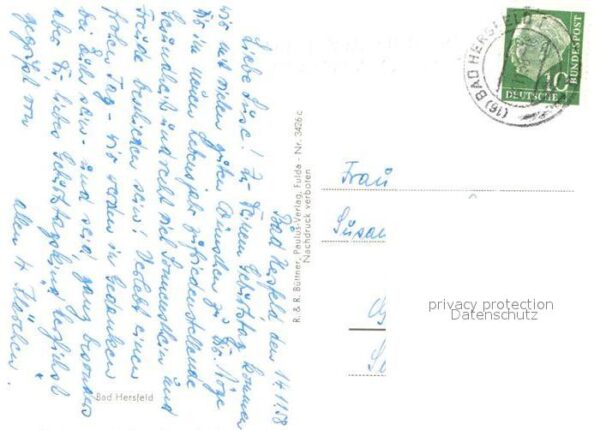 Bad Hersfeld den 14.1.58
Liebe Suse! Zu Deinem Geburtstag kommen
wir mit vielen guten Wünschen zu Dir. Möge
Dir im neuen Lebensjahr zufriedenstellende
Gesundheit und recht viel Sonnenschein und
Freude beschieden sein! Verlebt einen
frohen Tag - wir werden in Gedanken
bei Euch sein - und seid ganz besonders
aber Du liebes Geburtstagskind herzlichst
gegrüßt von
allen 4
Bad Hersfeld
R. & R. Büttner, Paulus-Verlag, Fulda - Nr. 3426 c
Nachdruck verboten
(16) BAD HERSFELD 1
10
DEUTSCHE
BUNDESPOST
Frau
Susan
privacy protection
Datenschutz